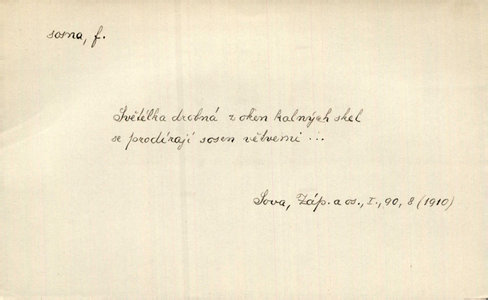 sosna, f.
Světélka drobná z oken kalných skel
se prodírají sosen větvemi ...
Sova, Záp. a os., I., 90, 8 (1910)